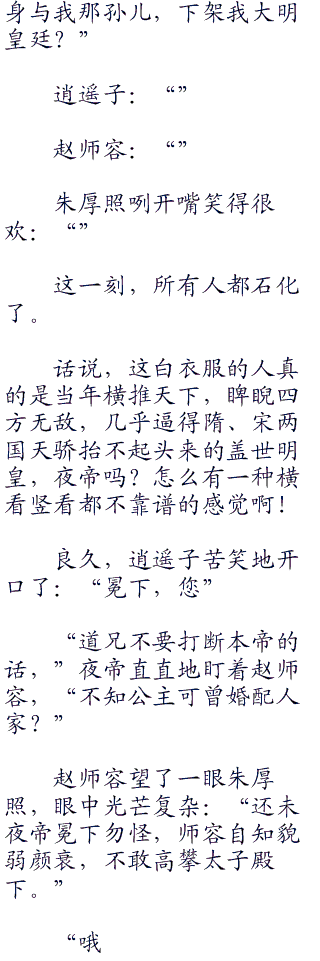 身与我那孙儿，下架我大明
皇廷？”
逍遥子：“”
赵师容：“”
朱厚照咧开嘴笑得很
欢：“”
这一刻，所有人都石化
了。
话说，这白衣服的人真
的是当年横推天下，睥睨四
方无敌，几乎逼得隋、宋两
国天骄抬不起头来的盖世明
皇，夜帝吗？怎么有一种横
看竖看都不靠谱的感觉啊！
良久，逍遥子苦笑地开
口了：“冕下，您”
“道兄不要打断本帝的
话，”夜帝直直地盯着赵师
容，“不知公主可曾婚配人
家？”
赵师容望了一眼朱厚
照，眼中光芒复杂：“还未
夜帝冕下勿怪，师容自知貌
弱颜衰，不敢高攀太子殿
下。”
“哦